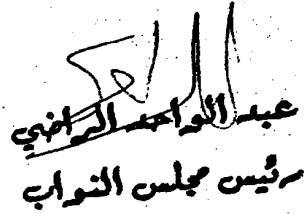 عبد الواحد الراضي
رئيس مجلس النواب